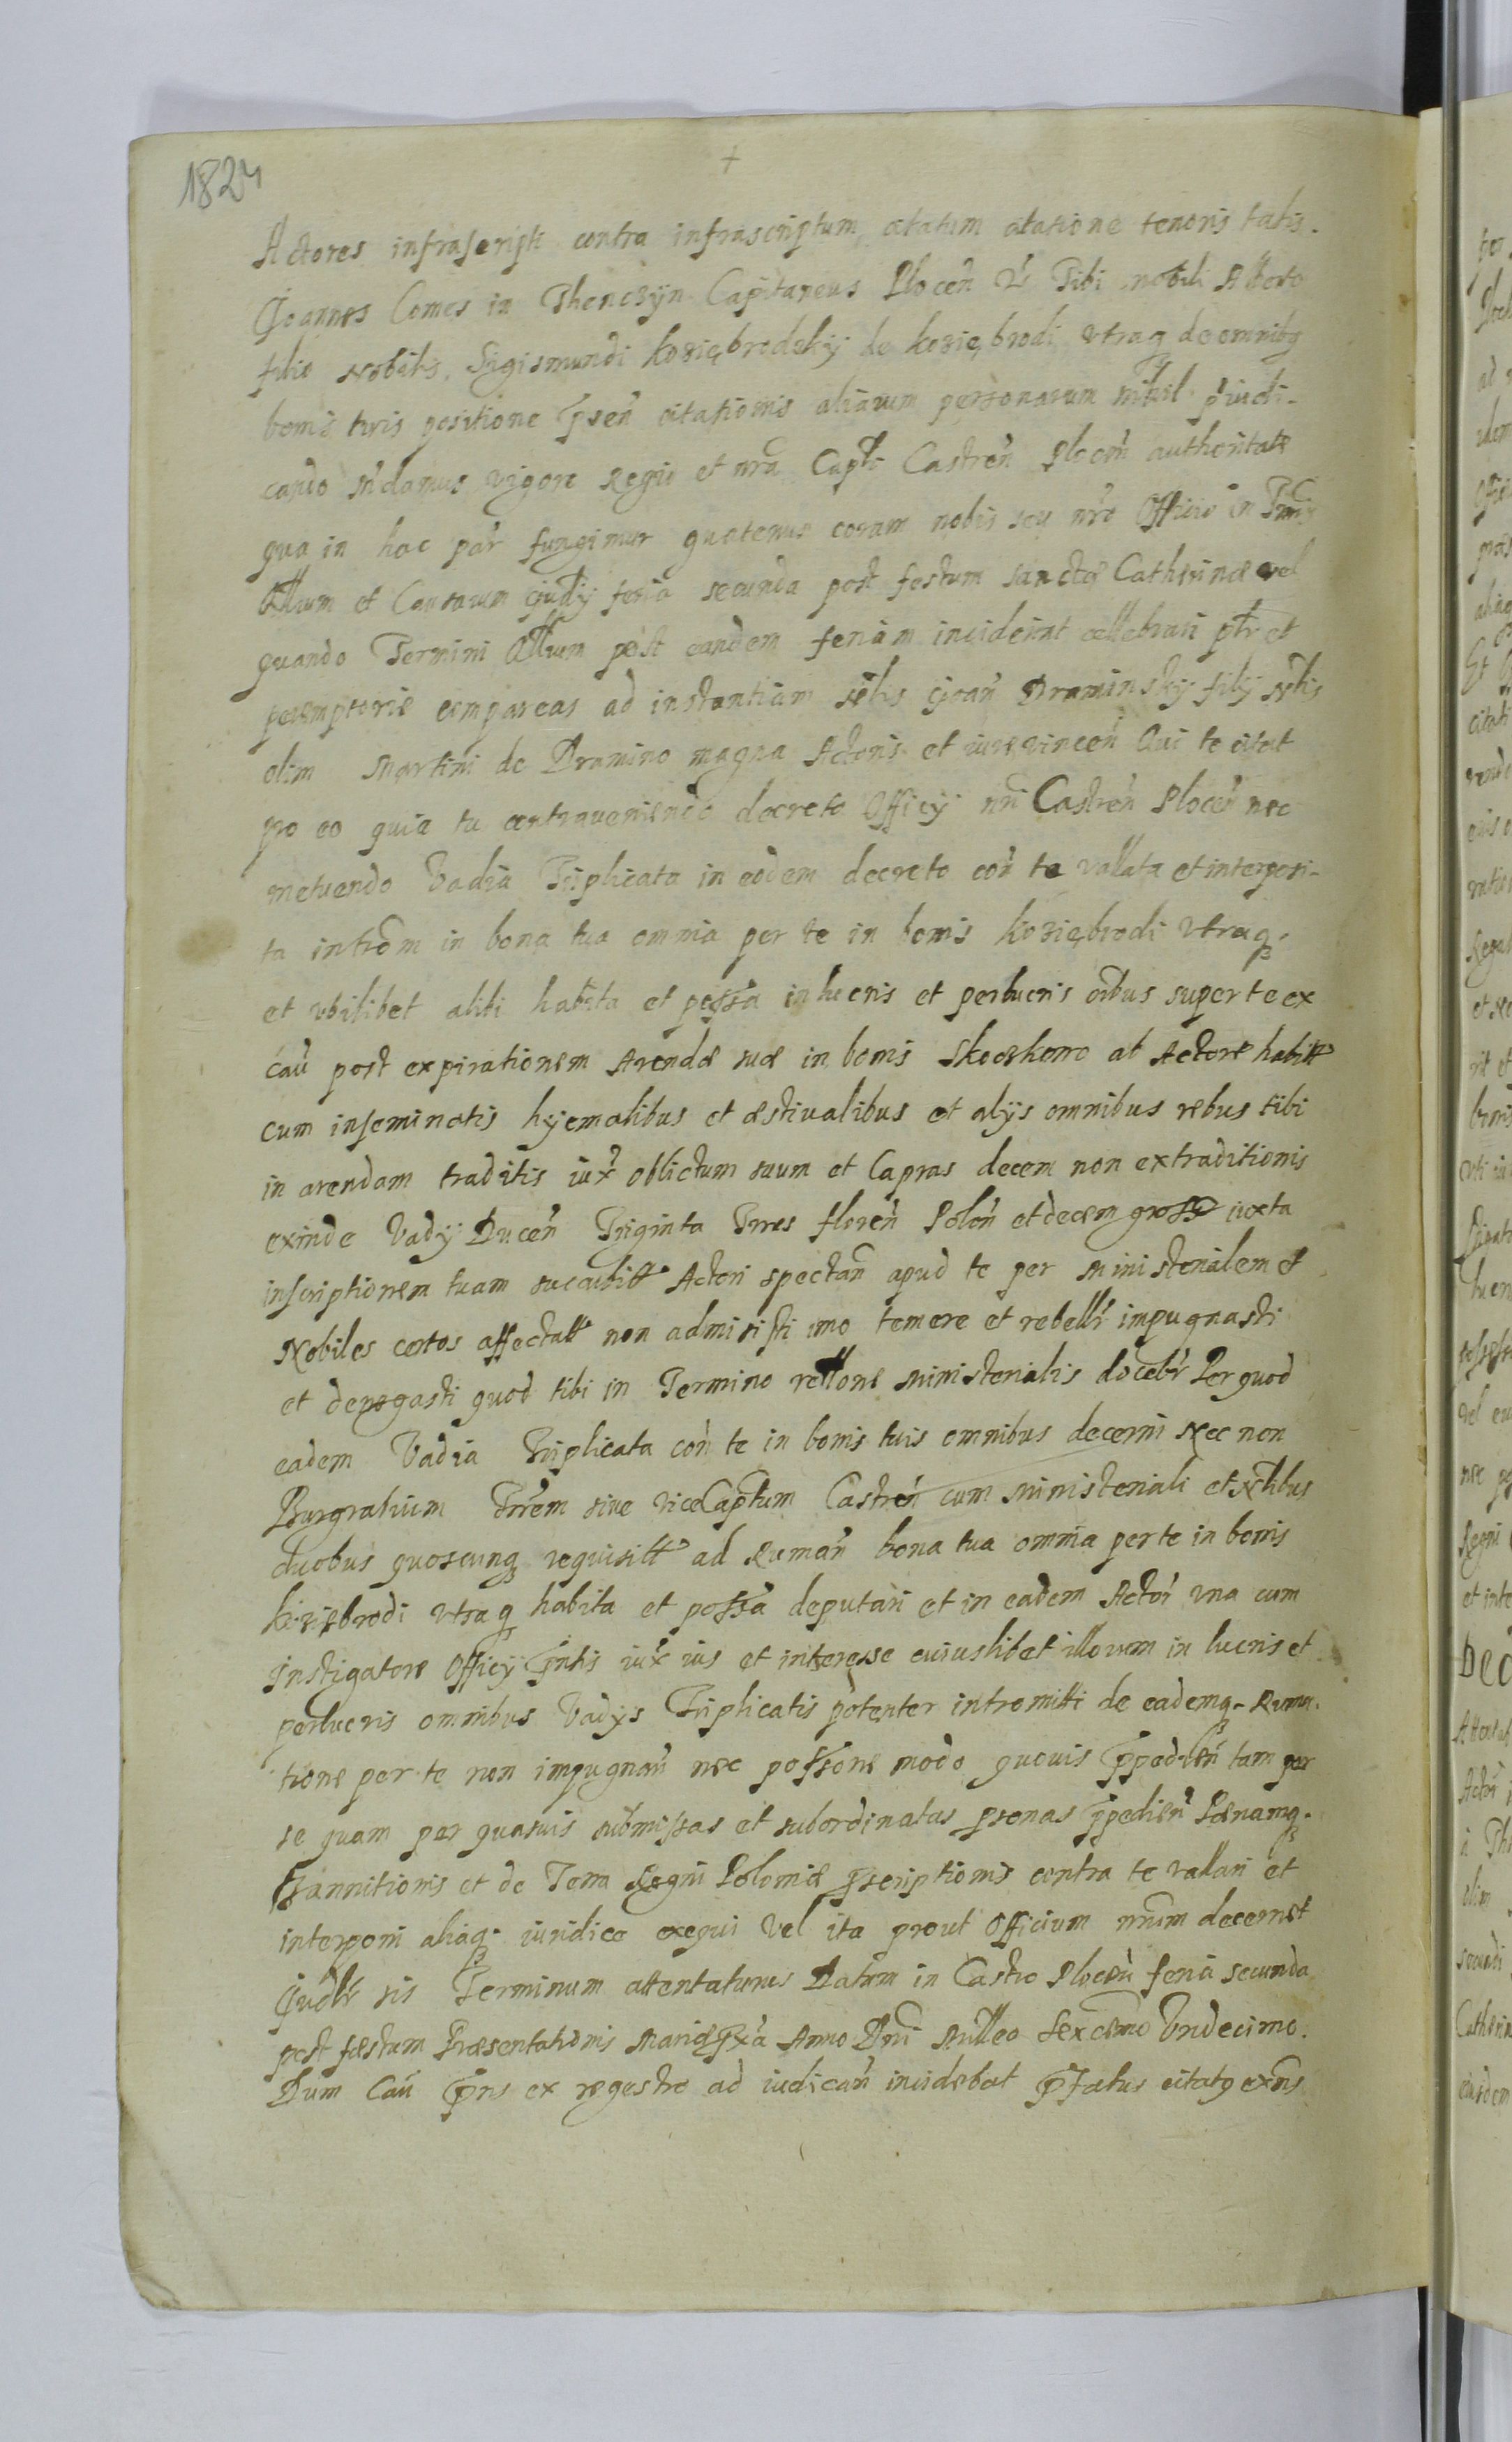 1824
+
Actores infrascripti contra infrascriptum citatum citatione tenoris talis.
Joannes Comes in Thenczyn Capitaneus Plocen̄ Tibi nobili Alberto
filio Nobilis Sigismundi koziębrodzky de koziębrodi vtraq de omnibq
bonis tuis positione pn̄sen̄ citationis aliarum personarum nihil p̄iudi-
cando m̄damus vigore Regio et nrā Capli Castren̄ Plocen̄ authoritate
qua in hac par̄ fungimur quatenus coram nobis seu nr̄o Officio in
Qllum et Causarum Judij feria secunda post festum sanctæ Catherinæ vel
quando Termini Qllum post eandem feriam inciderint cellebrari ptr̄ et
peremptorie compareas ad instantiam Nblis Joan̄ Draminsky filij Nblis
olim Martini de Dramino magna Actoris et iurevincen̄ Qui te citat
pro eo quia tu contraveniendo decreto Officij nr̄i Castren̄ Plocen̄ nec
metuendo Vadia Triplicata in eodem decreto con̄ te vallata et interposi-
ta introm̄ in bona tua omnia per te in bonis koziębrodi vtraq.
et vbilibet alibi habita et possa in lucris et perlucris oībus super te ex
cau̇ post expirationem Arendæ suæ in bonis ab Actore habitt
cum inseminatis hyemalibus et æstiualibus et alijs omnibus rebus tibi
in arendam traditis iux̄ oblictum suum et Capras decem non extraditionis
exinde Vadij Ducen̄ Triginta Trres floren̄ Polon̄ et decem gross iuxta
inscriptionem tuam succubitt Actori spectan̄ apud te per Ministerialem et
Nobiles certos affectatt non admisisti imo temere et rebellr̄ impugnasti
et denegasti quod tibi in Termino rellone Ministerialis docebr̄ Per quod
eadem Vadia Triplicata con̄ te in bonis tuis omnibus decerni Nec non
Burgrabium Trrem siue viceCaptum Castren̄ cum Ministeriali et Nblibus
duobus quoscunq requisitt ad Ruman̄ bona tua omnia per te in bonis
koziebrodi vtraq habita et possa deputari et in eadem Actor̄ vna cum
Instigatore Officij pn̄tis iux̄ ius et interesse cuiuslibet illorum in lucris et
perlucris omnibus Vadijs Triplicatis potenter intromitti de eademq. Ruma-
tione per te non impugnan̄ nec possone modo quouis ppedien̄ tam per
se quam per quasuis submissas et subordinatas psonas ppedien̄ Pænamq.
Bannitionis et de Terra Regni Poloniæ pscriptionis contra te vallari et
interponi aliaq. iuridice exequi Vel ita prout Officium nr̄um decernet
Judr̄ sis Terminum attentaturus Datum in Castro Plocen̄ feria secunda
post festum Præsentationis Mariæ pxa Anno Dni Milleo Sexcemo Vndecimo.
Dum Cau̇ pns ex regestro ad iudican̄ incidebat pfatus citatq exn̄s